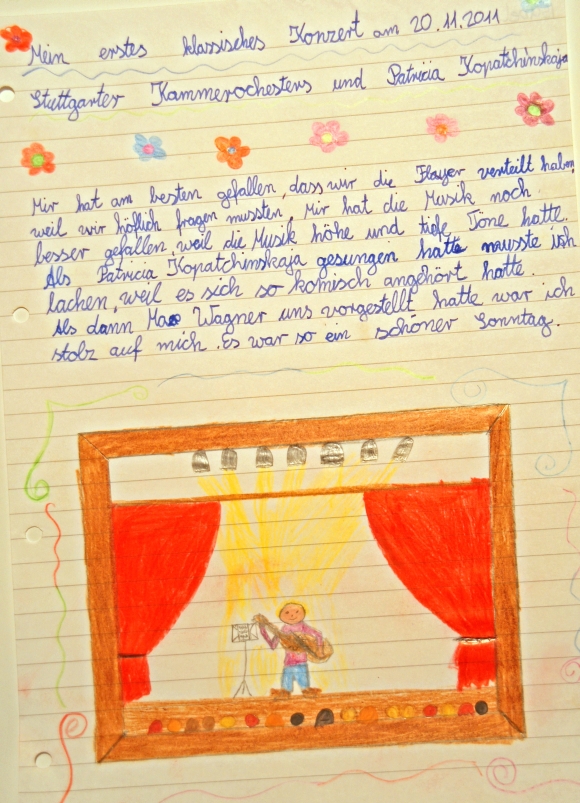 Mein erstes klassisches Konzert am 20.11.2011
Stuttgarter Kammerochesters und Patricia Kopatchinskaja
Mir hat am besten gefallen, dass wir die Flayer verteilt haben,
weil wir höflich fragen mussten. Mir hat die Musik noch
besser gefallen weil die Musik höhe und tiefe Töne hatte.
Als Patricia Kopatchinskaja gesungen hatte musste ich
lachen, weil es sich so komisch angehört hatte.
Als dann Wagner uns vorgestellt hatte war ich
stolz auf mich. Es war so ein schöner Sonntag.